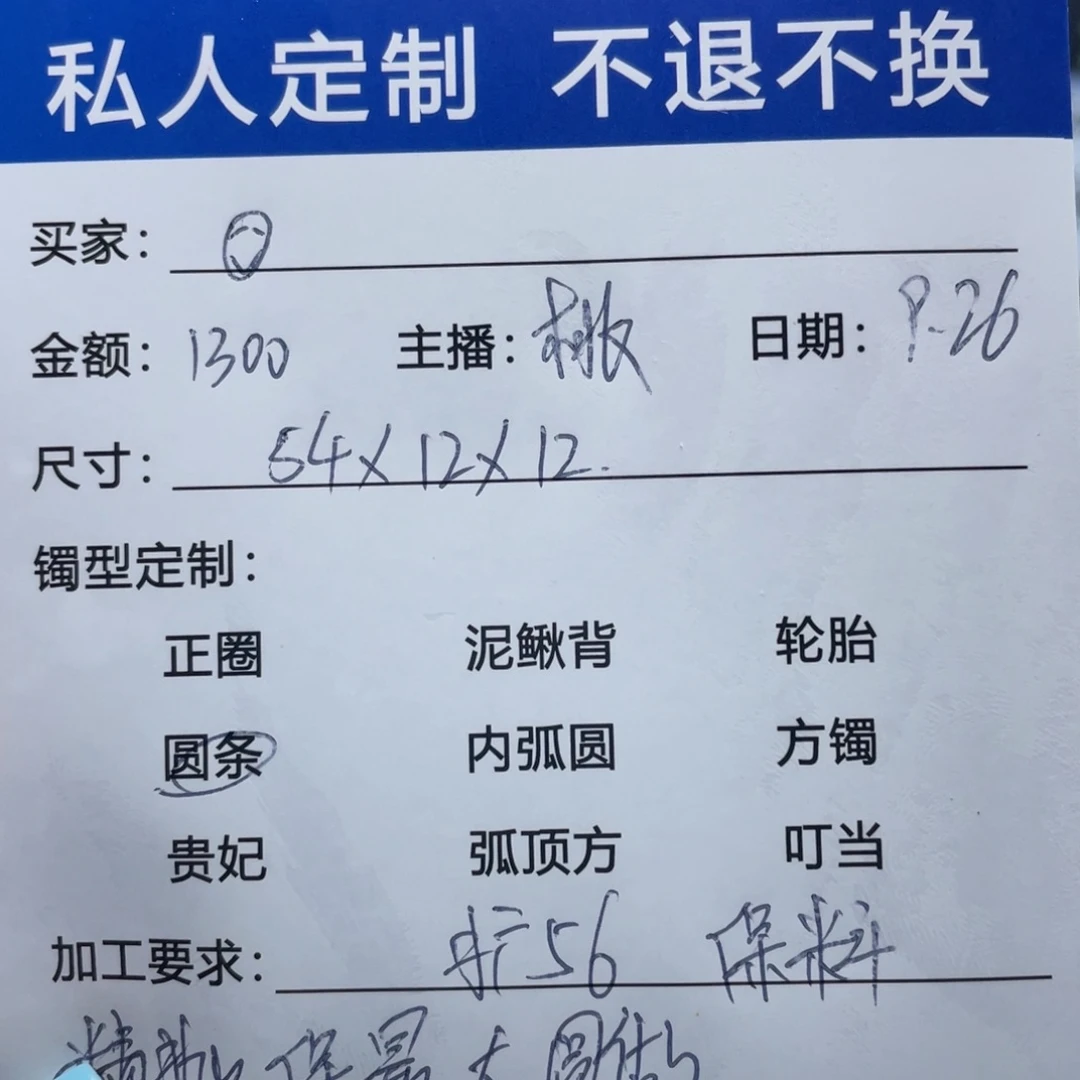 私人定制 不退不换
买家：
金额：1300 主播： 日期：9.26
尺寸：54×12×12.
镯型定制：
正圈 泥鳅背 轮胎
圆条 内弧圆 方镯
贵妃 弧顶方 叮当
加工要求：扩56 保料
保最大圆做